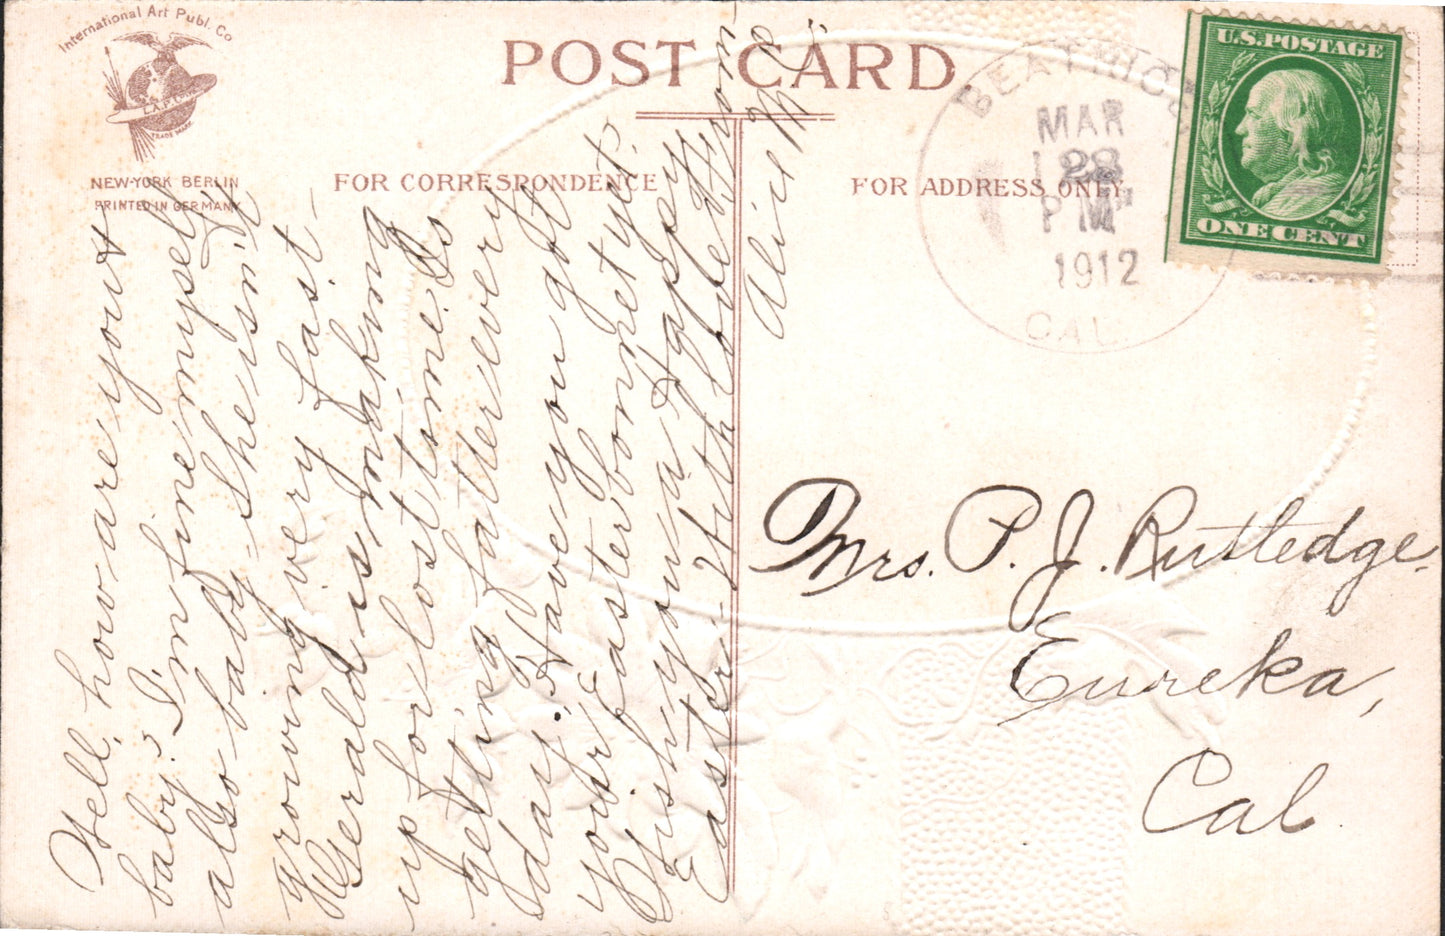 International Art Publ. Co
I.A.P.Co.
TRADE MARK
NEW-YORK BERLIN
PRINTED IN GERMANY
POST CARD
FOR CORRESPONDENCE
FOR ADDRESS ONLY
BEATRICE
MAR
28
PM
1912
CAL.
U.S.POSTAGE
ONE CENT
Well, how are you &
baby? I'm fine myself
also baby - she is
growing very fast -
Gerald is making
up for lost time. Is
getting fatter every
day. Have you got
your Easter bonnet yet?
Wish you a Happy
Easter - With love
from
Alice
Mrs. P. J. Rutledge.
Eureka,
Cal.